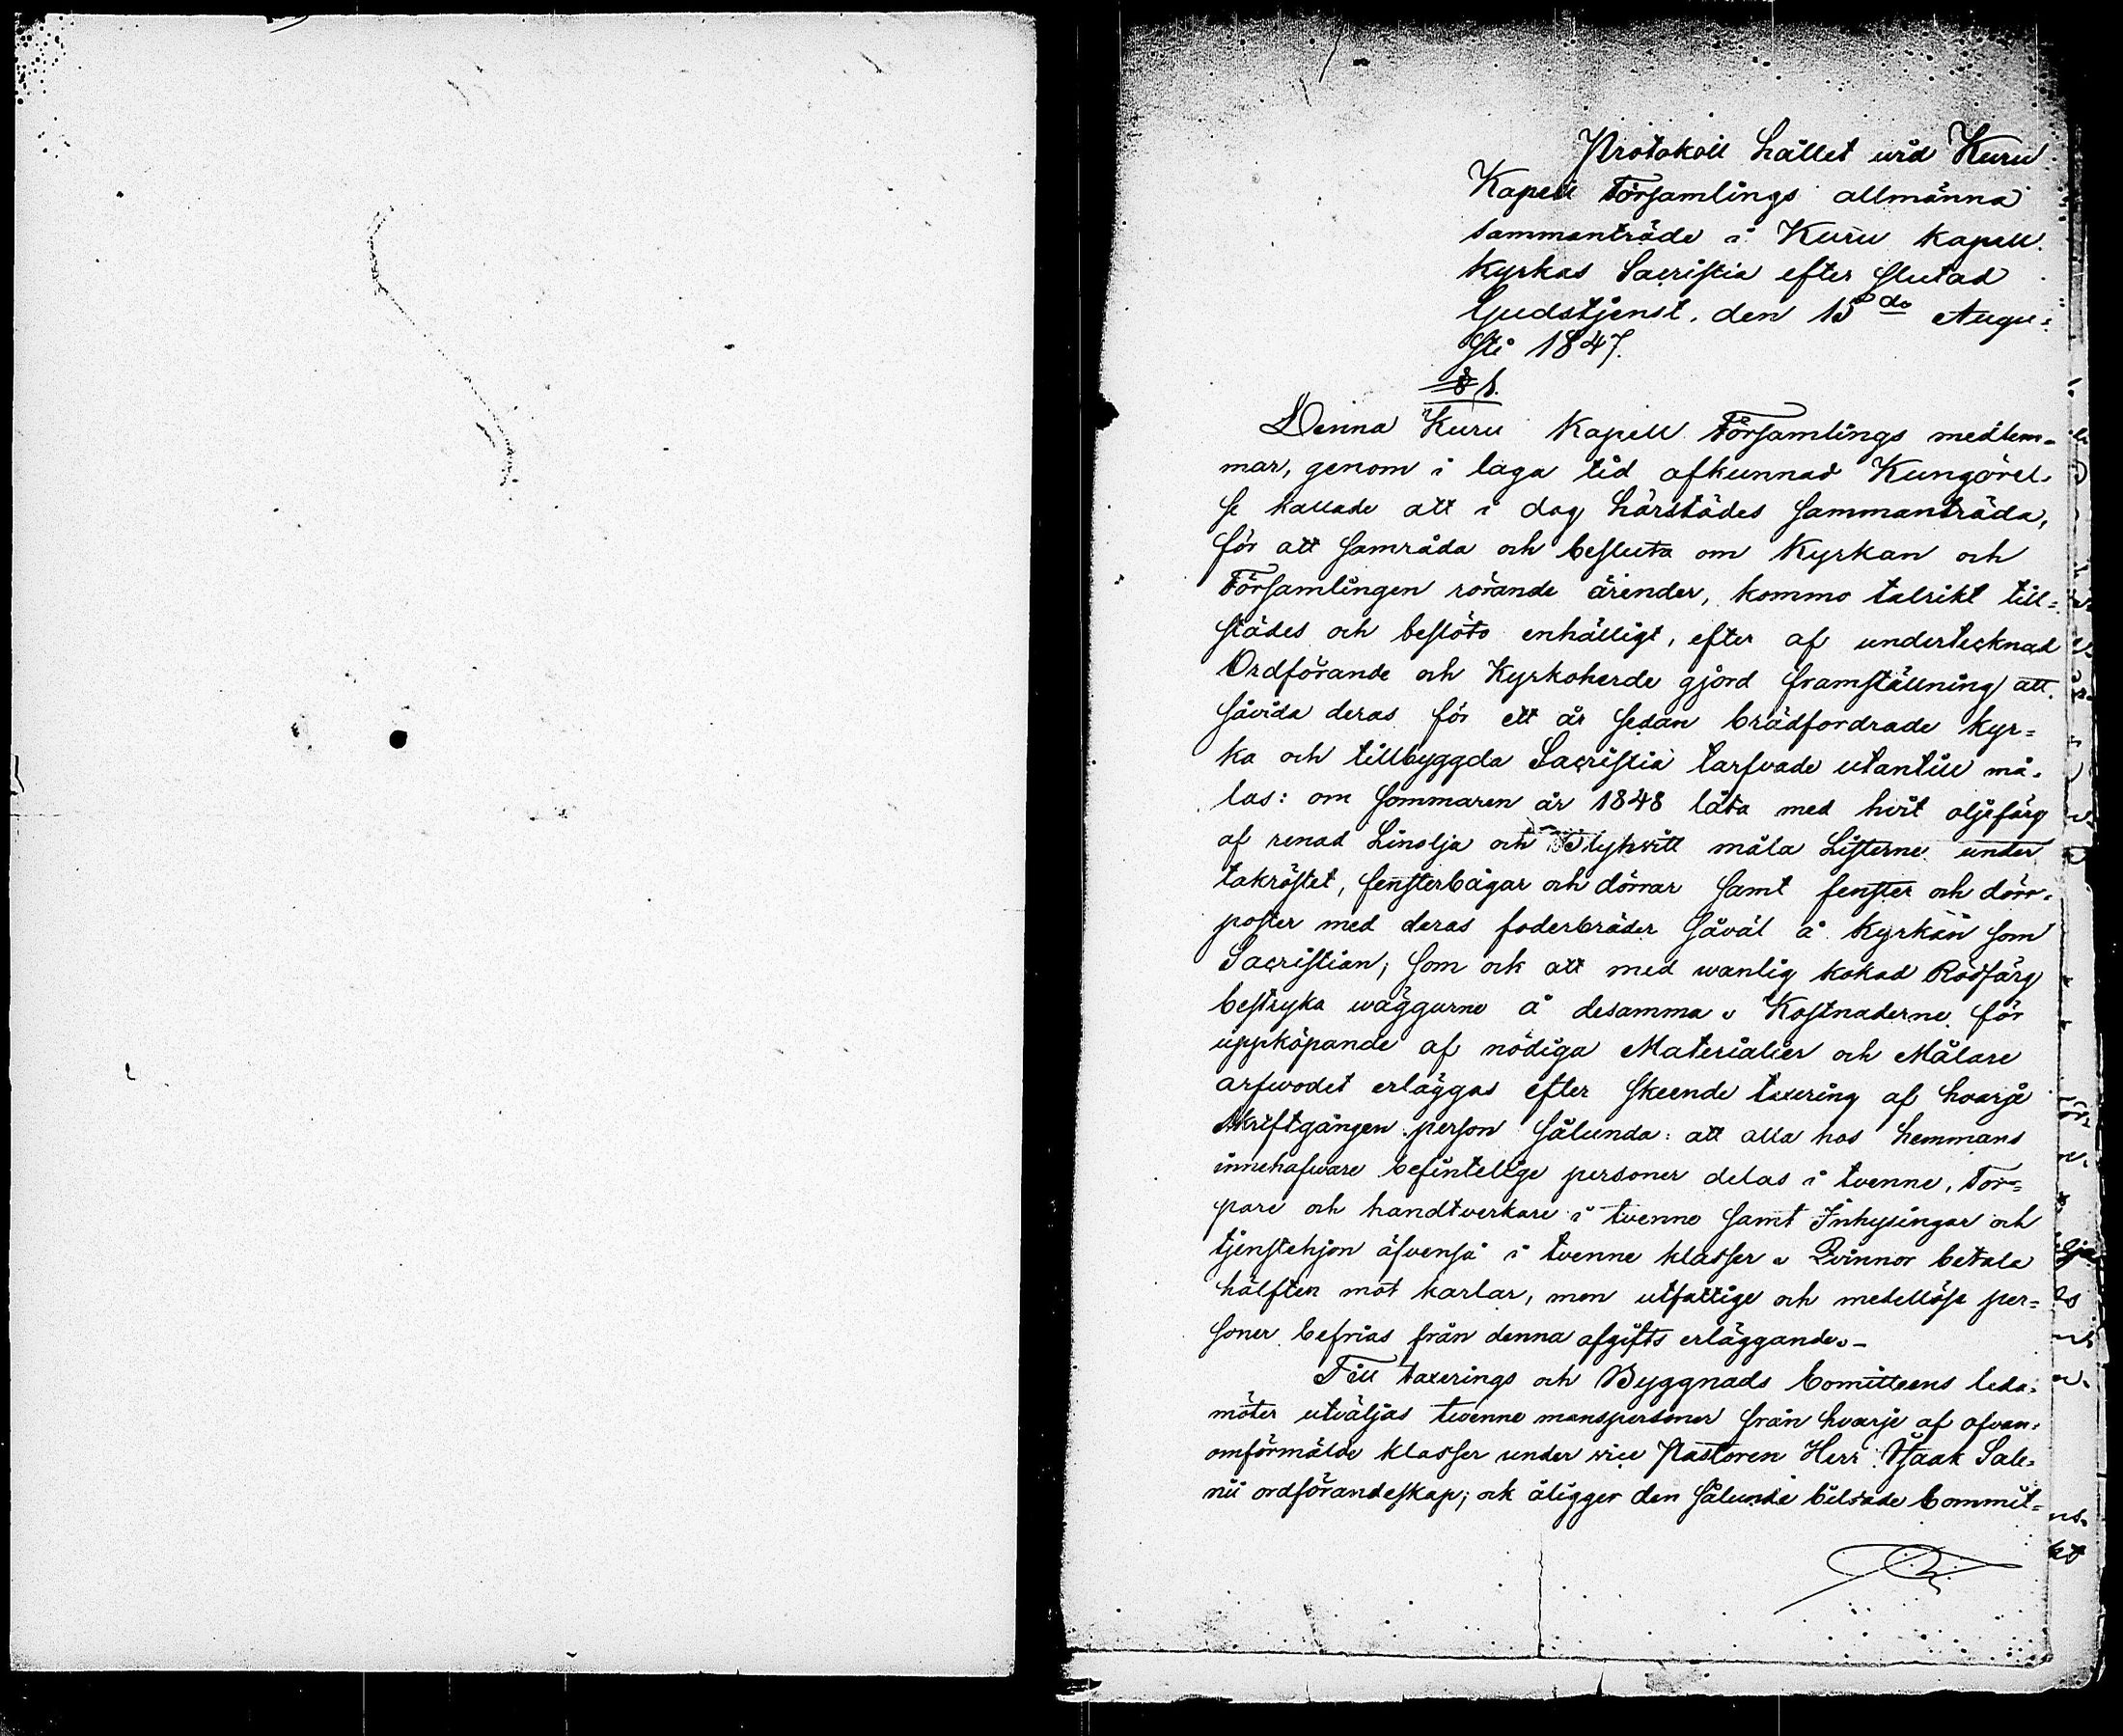 Protokoll hållet wid Kuru
Kapell Församlings allmänna
sammanträde i Kuru kapell
kyrkas Sacristia efter slutad
Gudstjenst, den 15de Augu=
sti 1847.
§ 1.
Denna Kuru Kapell Församlings medlem-
mar, genom i laga tid afkunnad Kungörel-
se kallade att i dag härstädes sammanträda,
för att samråda och besluta om Kyrkan och
Församlingen rörande ärender, kommo talrikt till=
städes och beslöts enhälligt, efter af undertecknad
Ordförande och Kyrkoherde gjord framställning att
såvida deras för ett år sedan brädfordrade kyr=
ka och tillbyggda Sacristia tarfvade utantill må-
las: om sommaren år 1848 låta med hvit oljefärg
af renad Linolja och Blyhvitt måla Listerne under
takröstet, fensterbågar och dörrar samt fenster och dörr-
poster med deras foderbräder såväl å Kyrkan som
Sacristian; som ock att med wanlig kokad Rödfärg
bestryka wäggarne å desamma. Kostnaderne för
uppköpande af nödiga Materialier och Målare
arfwodet erläggas efter skeende taxering af hvarje
skriftgången person sålunda: att alla hos hemmans
innehafware befintelige personer delas i tvenne, Tor=
pare och handtverkare i tvenne samt Inhysingar och
tjenstehjon äfvenså i tvenne klasser. Qvinnor betala
hälften mot karlar, men utfattige och medellöse per=
soner befrias från denna afgifts erläggande.-
Till taxerings och Byggnads Comitteens leda=
möter utväljas twenne manspersoner från hvarje af ofvan-
omförmälde klasser under vice Pastoren Herr Isaak Sale=
nii ordförandeskap; ock åligger den sålunde bildade Commit=